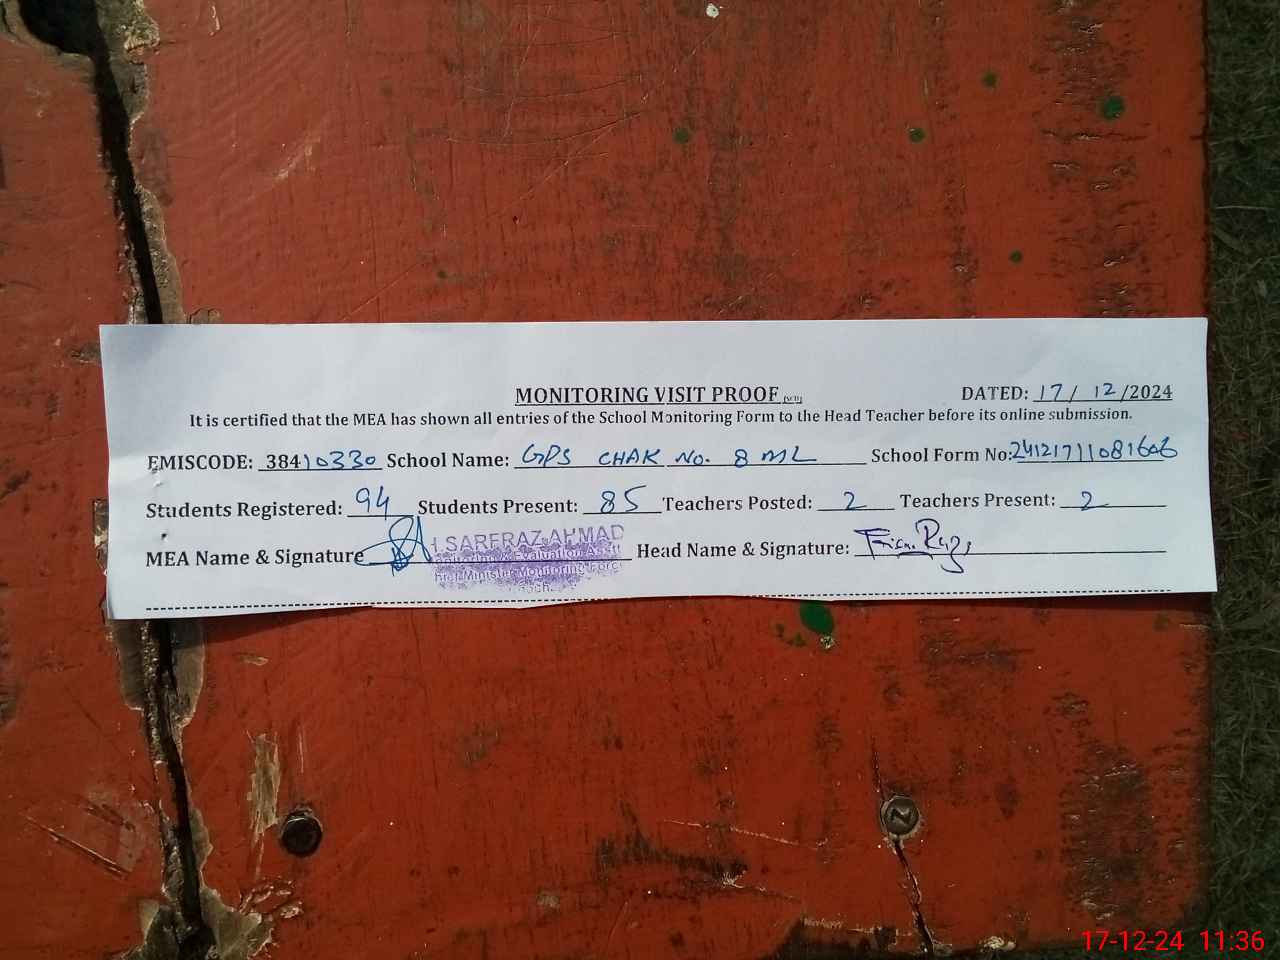 MONITORING VISIT PROOF (SCD) DATED: 17/12/2024
It is certified that the MEA has shown all entries of the School Monitoring Form to the Head Teacher before its online submission.
EMISCODE: 38410330 School Name: GPS CHAK No. 8 ML School Form No: 24121711081606
Students Registered: 94 Students Present: 85 Teachers Posted: 2 Teachers Present: 2
MEA Name & Signature Head Name & Signature:
SARFRAZ AHMAD
Evaluation Asstt
Chief Minister Monitoring Force
17-12-24 11:36